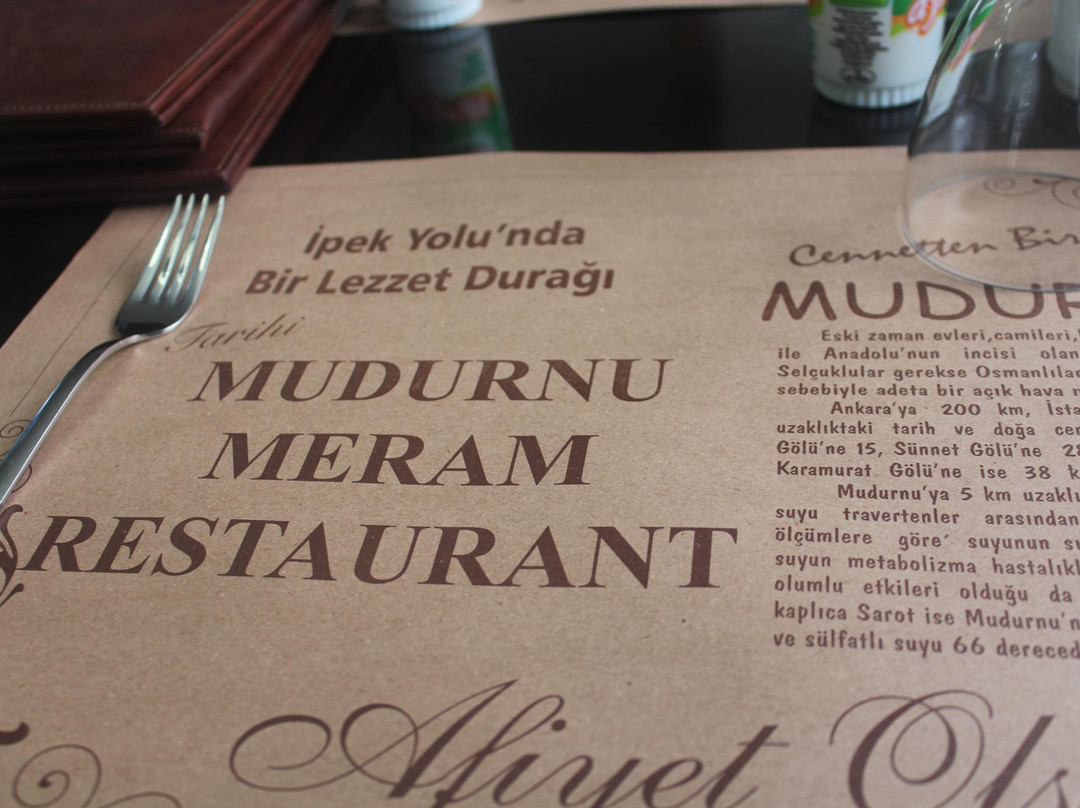 İpek Yolu'nda
Bir Lezzet Durağı
Tarihi
MUDURNU
MERAM
RESTAURANT
Cennetten Bir
MUDUR
Eski zaman evleri,camileri,
ile Anadolu'nun incisi olan
Selçuklular gerekse Osmanlılar
sebebiyle adeta bir açık hava
Ankara'ya 200 km, İsta
uzaklıktaki tarih ve doğa cen
Gölü'ne 15, Sünnet Gölü'ne 28
Karamurat Gölü'ne ise 38 k
Mudurnu'ya 5 km uzaklı
suyu travertenler arasından
ölçümlere göre suyunun
suyun metabolizma hastalıkl
olumlu etkileri olduğu da
kaplıca Sarot ise Mudurnu'n
ve sülfatlı suyu 66 dereced
Afiyet Ols